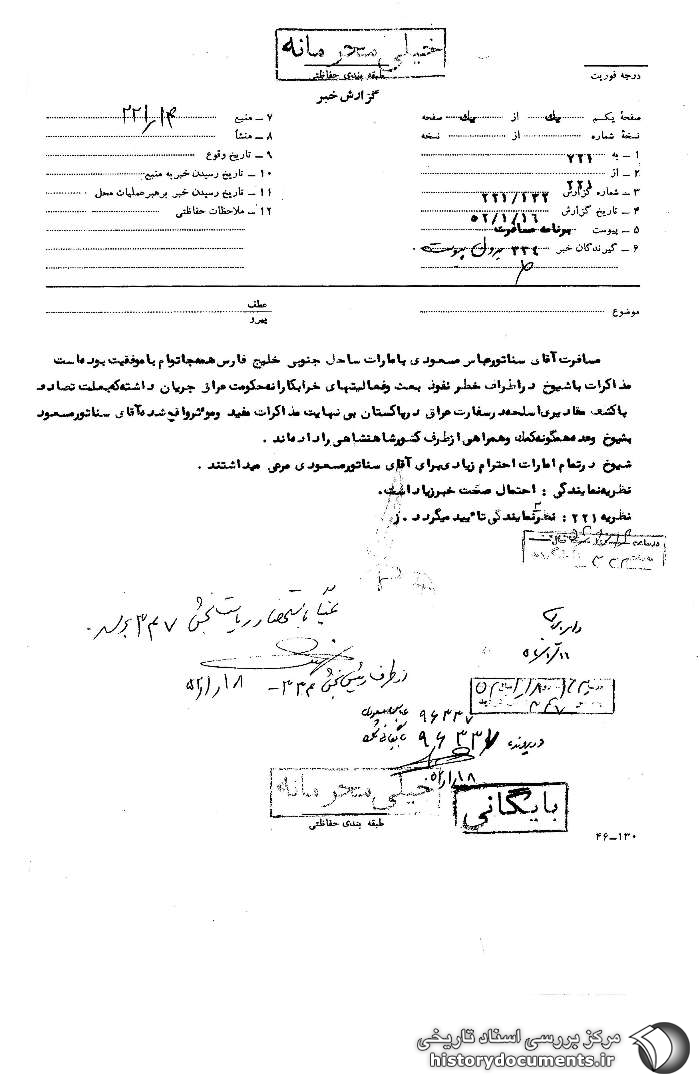 خیلی محرمانه
طبقه بندی حفاظتی
درجه فوریت
گزارش خبر
صفحهٔ یکم یک از یک صفحه
نسخهٔ شماره از نسخه
۱ ــ به ۲۲۱
۲ ــ از ۲۲۱
۳ ــ شماره گزارش ۲۲۱/۱۳۲
۴ ــ تاریخ گزارش ۵۲/۱/۱۶
۵ ــ پیوست برنامه مسافرت
۶ ــ گیرندگان خبر ۳۳۴ بدون پیوست
۷ ــ منبع
۸ ــ منشأ
۹ ــ تاریخ وقوع
۱۰ ــ تاریخ رسیدن خبر به منبع
۱۱ ــ تاریخ رسیدن خبر برهبر عملیات محل
۱۲ ــ ملاحظات حفاظتی
موضوع
عطف
پیرو
مسافرت آقای سناتور عباس مسعودی بامارات ساحل جنوبی خلیج فارس همه جا توام با موفقیت بوده است
مذاکرات با شیوخ در اطراف خطر نفوذ بعث وفعالیتهای خرابکارانه حکومت عراق جریان داشته که بعلت تصادف
با کشف مقادیری اسلحه در سفارت عراق در پاکستان بی نهایت مذاکرات مفید وموثر واقع شده آقای سناتور مسعود
بشیوخ وعده همه گونه کمک وهمراهی از طرف کشور شاهنشاهی را داده اند .
شیوخ در تمام امارات احترام زیادی برای آقای سناتور مسعودی مرعی میداشتند .
نظریه نمایندگی : احتمال صحت خبر زیاد است.
نظریه ۲۲۱ : نظر نمایندگی تایید میگردد . ز
از طرف رئیس بخش ۳۳۴ -
۹۶۳۳۷
در پرونده ۹۶۳۳۷
خیلی محرمانه
طبقه بندی حفاظتی
بایگانی
۴۶-۱۳۰
مرکز بررسی اسناد تاریخی
historydocuments.ir